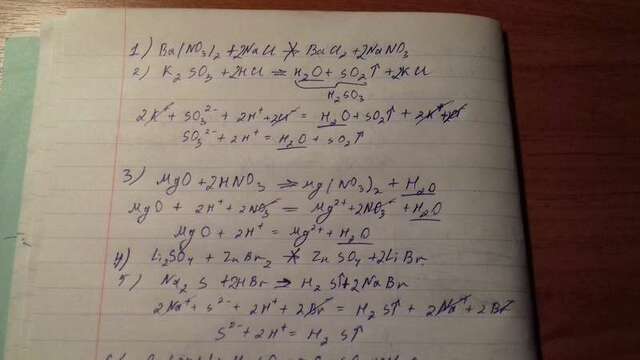 1) Ba(NO3)2 + 2NaCl ≠ BaCl2 + 2NaNO3
2) K2SO3 + 2HCl ⇒ H2O + SO2↑ + 2KCl
H2SO3
2K+ + SO3 2- + 2H+ + 2Cl- = H2O + SO2↑ + 2K+ + 2Cl-
SO3 2- + 2H+ = H2O + SO2↑
3) MgO + 2HNO3 ⇒ Mg(NO3)2 + H2O
MgO + 2H+ + 2NO3- = Mg2+ + 2NO3- + H2O
MgO + 2H+ = Mg2+ + H2O
4) Li2SO4 + ZnBr2 ≠ ZnSO4 + 2LiBr
5) Na2S + 2HBr ⇒ H2S↑ + 2NaBr
2Na+ + S2- + 2H+ + 2Br- = H2S↑ + 2Na+ + 2Br-
S2- + 2H+ = H2S↑